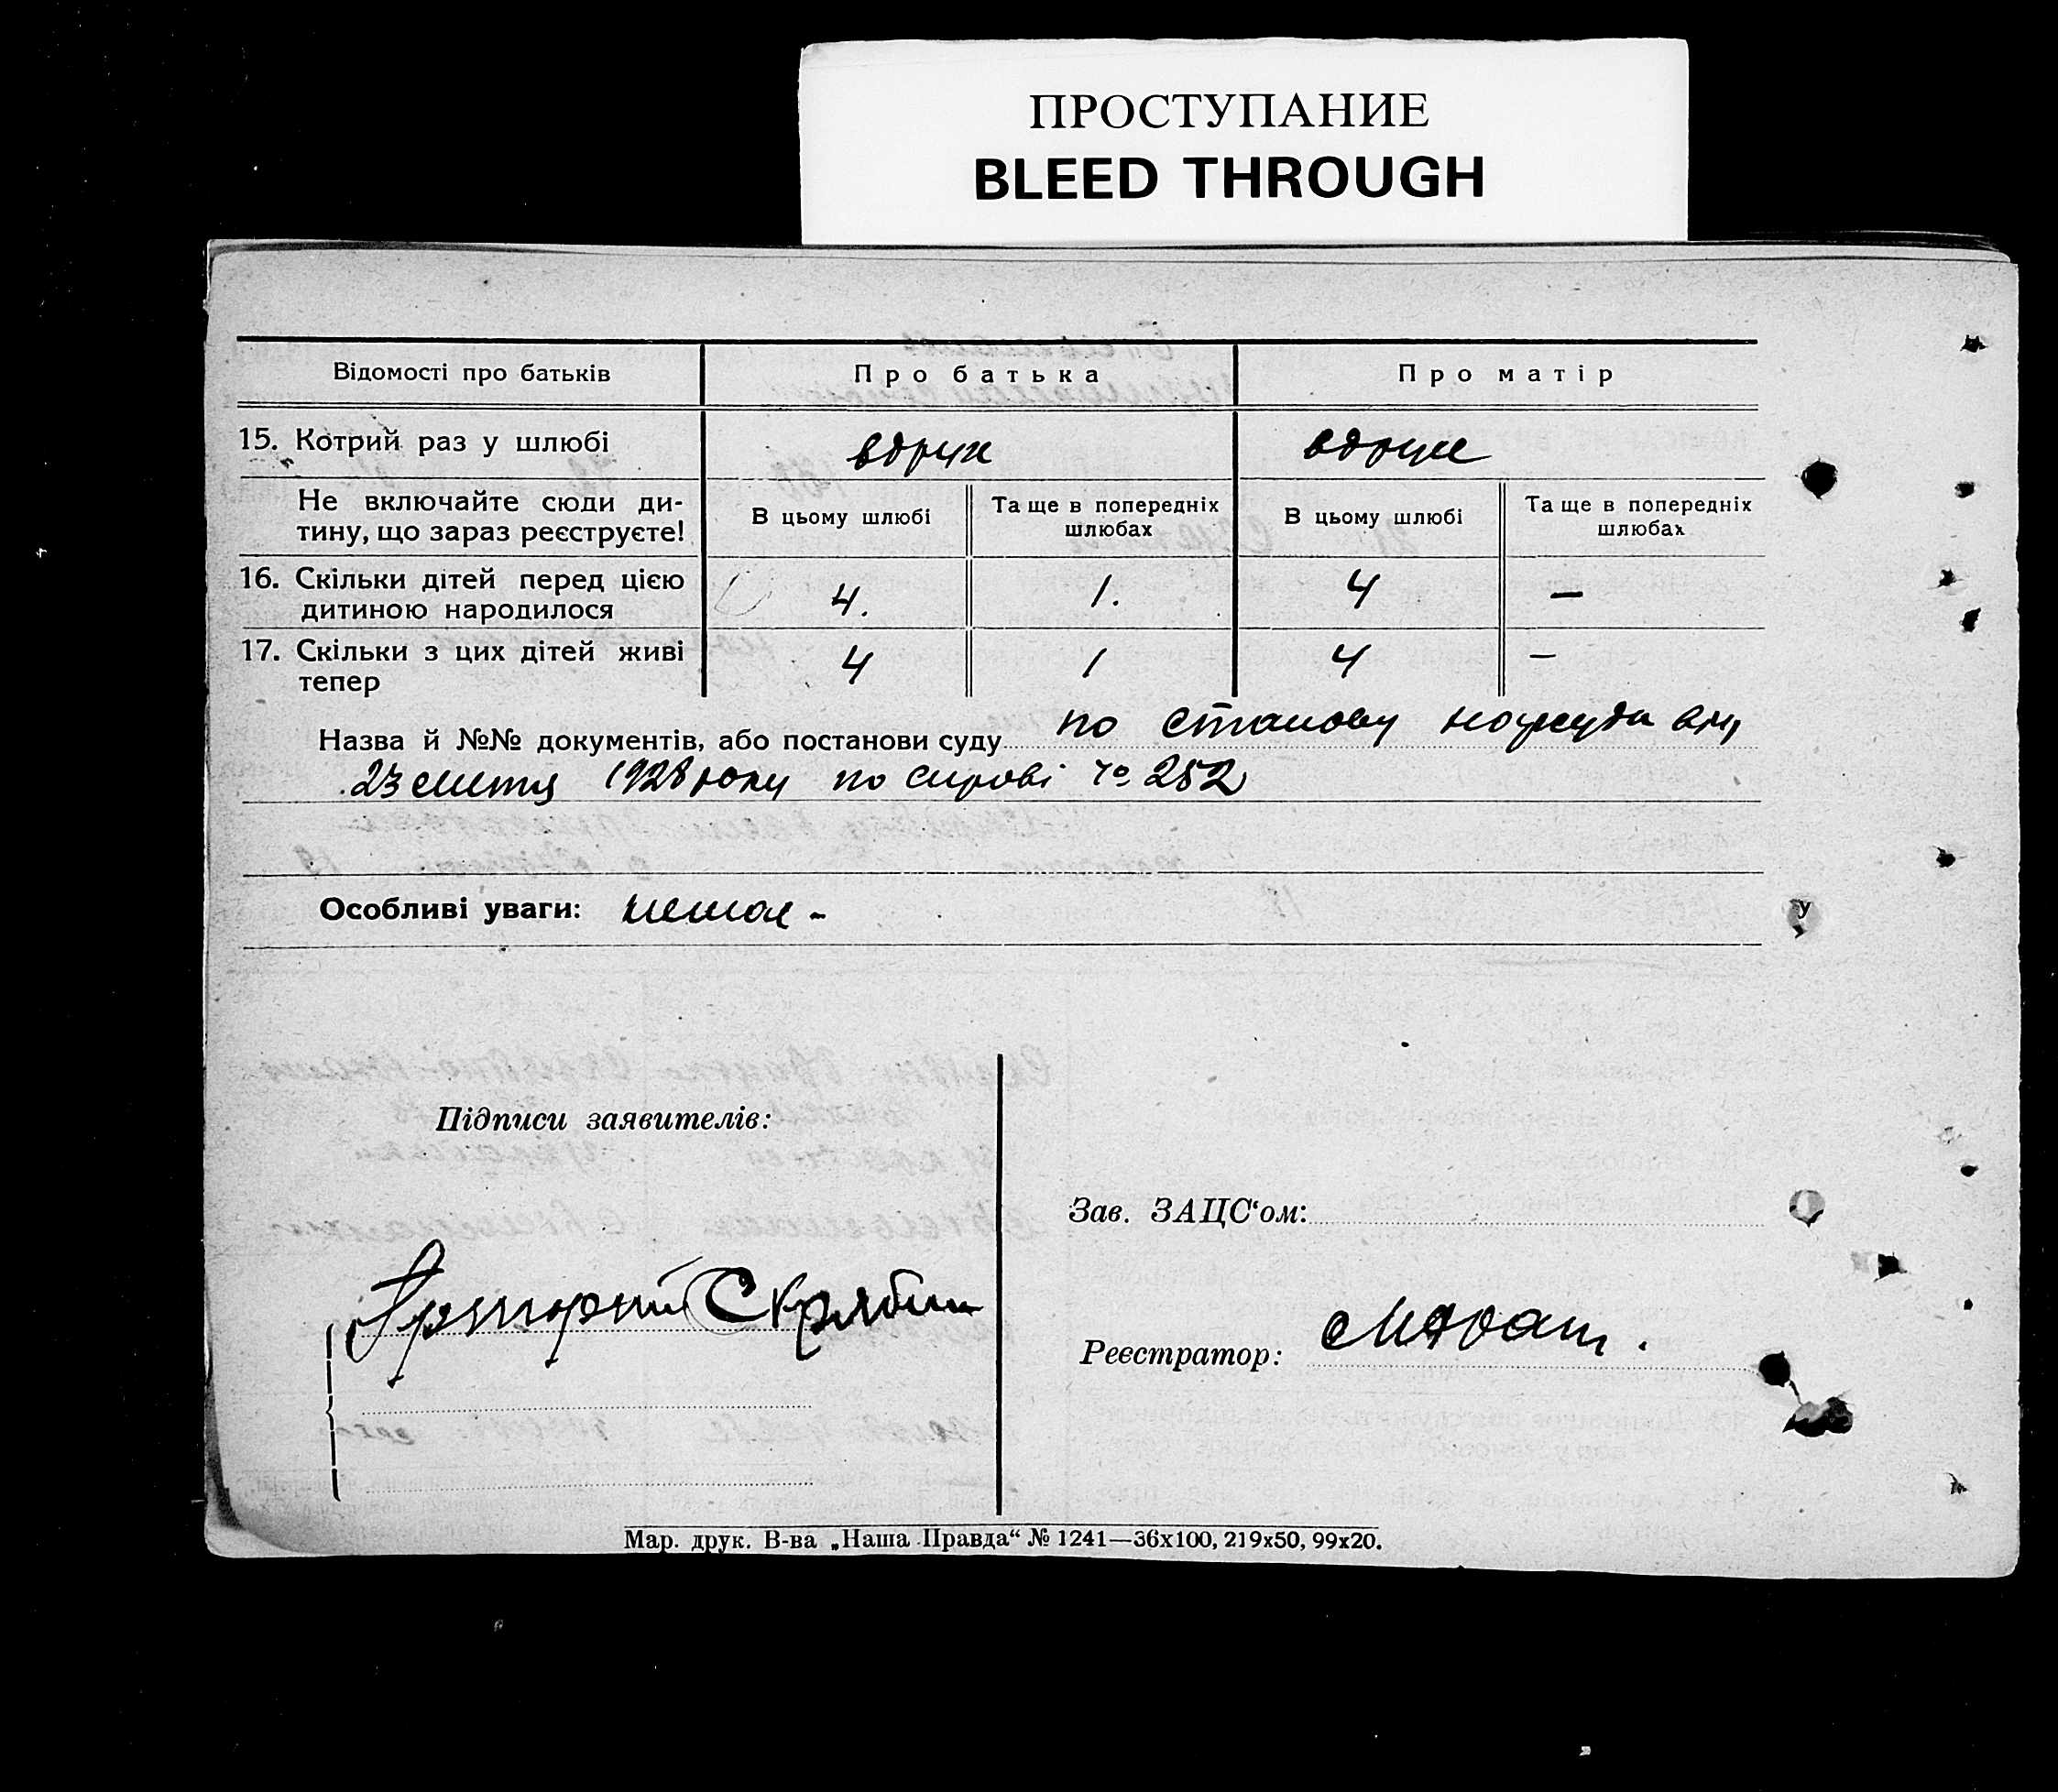 ПРОСТУПАНИЕ
BLEED THROUGH
Відомості про батьків Про батька Про матір
15. Котрий раз у шлюбі вдруге вдруге
Не включайте сюди ди-
тину, що зараз реєструєте!
В цьому шлюбі Та ще в попередніх шлюбах В цьому шлюбі Та ще в попередніх шлюбах
16. Скільки дітей перед цією
дитиною народилося 4. 1. 4 —
17. Скільки з цих дітей живі
тепер 4 1 4 —
Назва й №№ документів, або постанови суду по
23 1928 року по справі № 252
Особливі уваги: немає -
Підписи заявителів:
Зав. ЗАЦС‘ом:
Григорий Скрябин
Реєстратор:
Мар. друк. В-ва „Наша Правда“ № 1241—36х100, 219х50, 99х20.